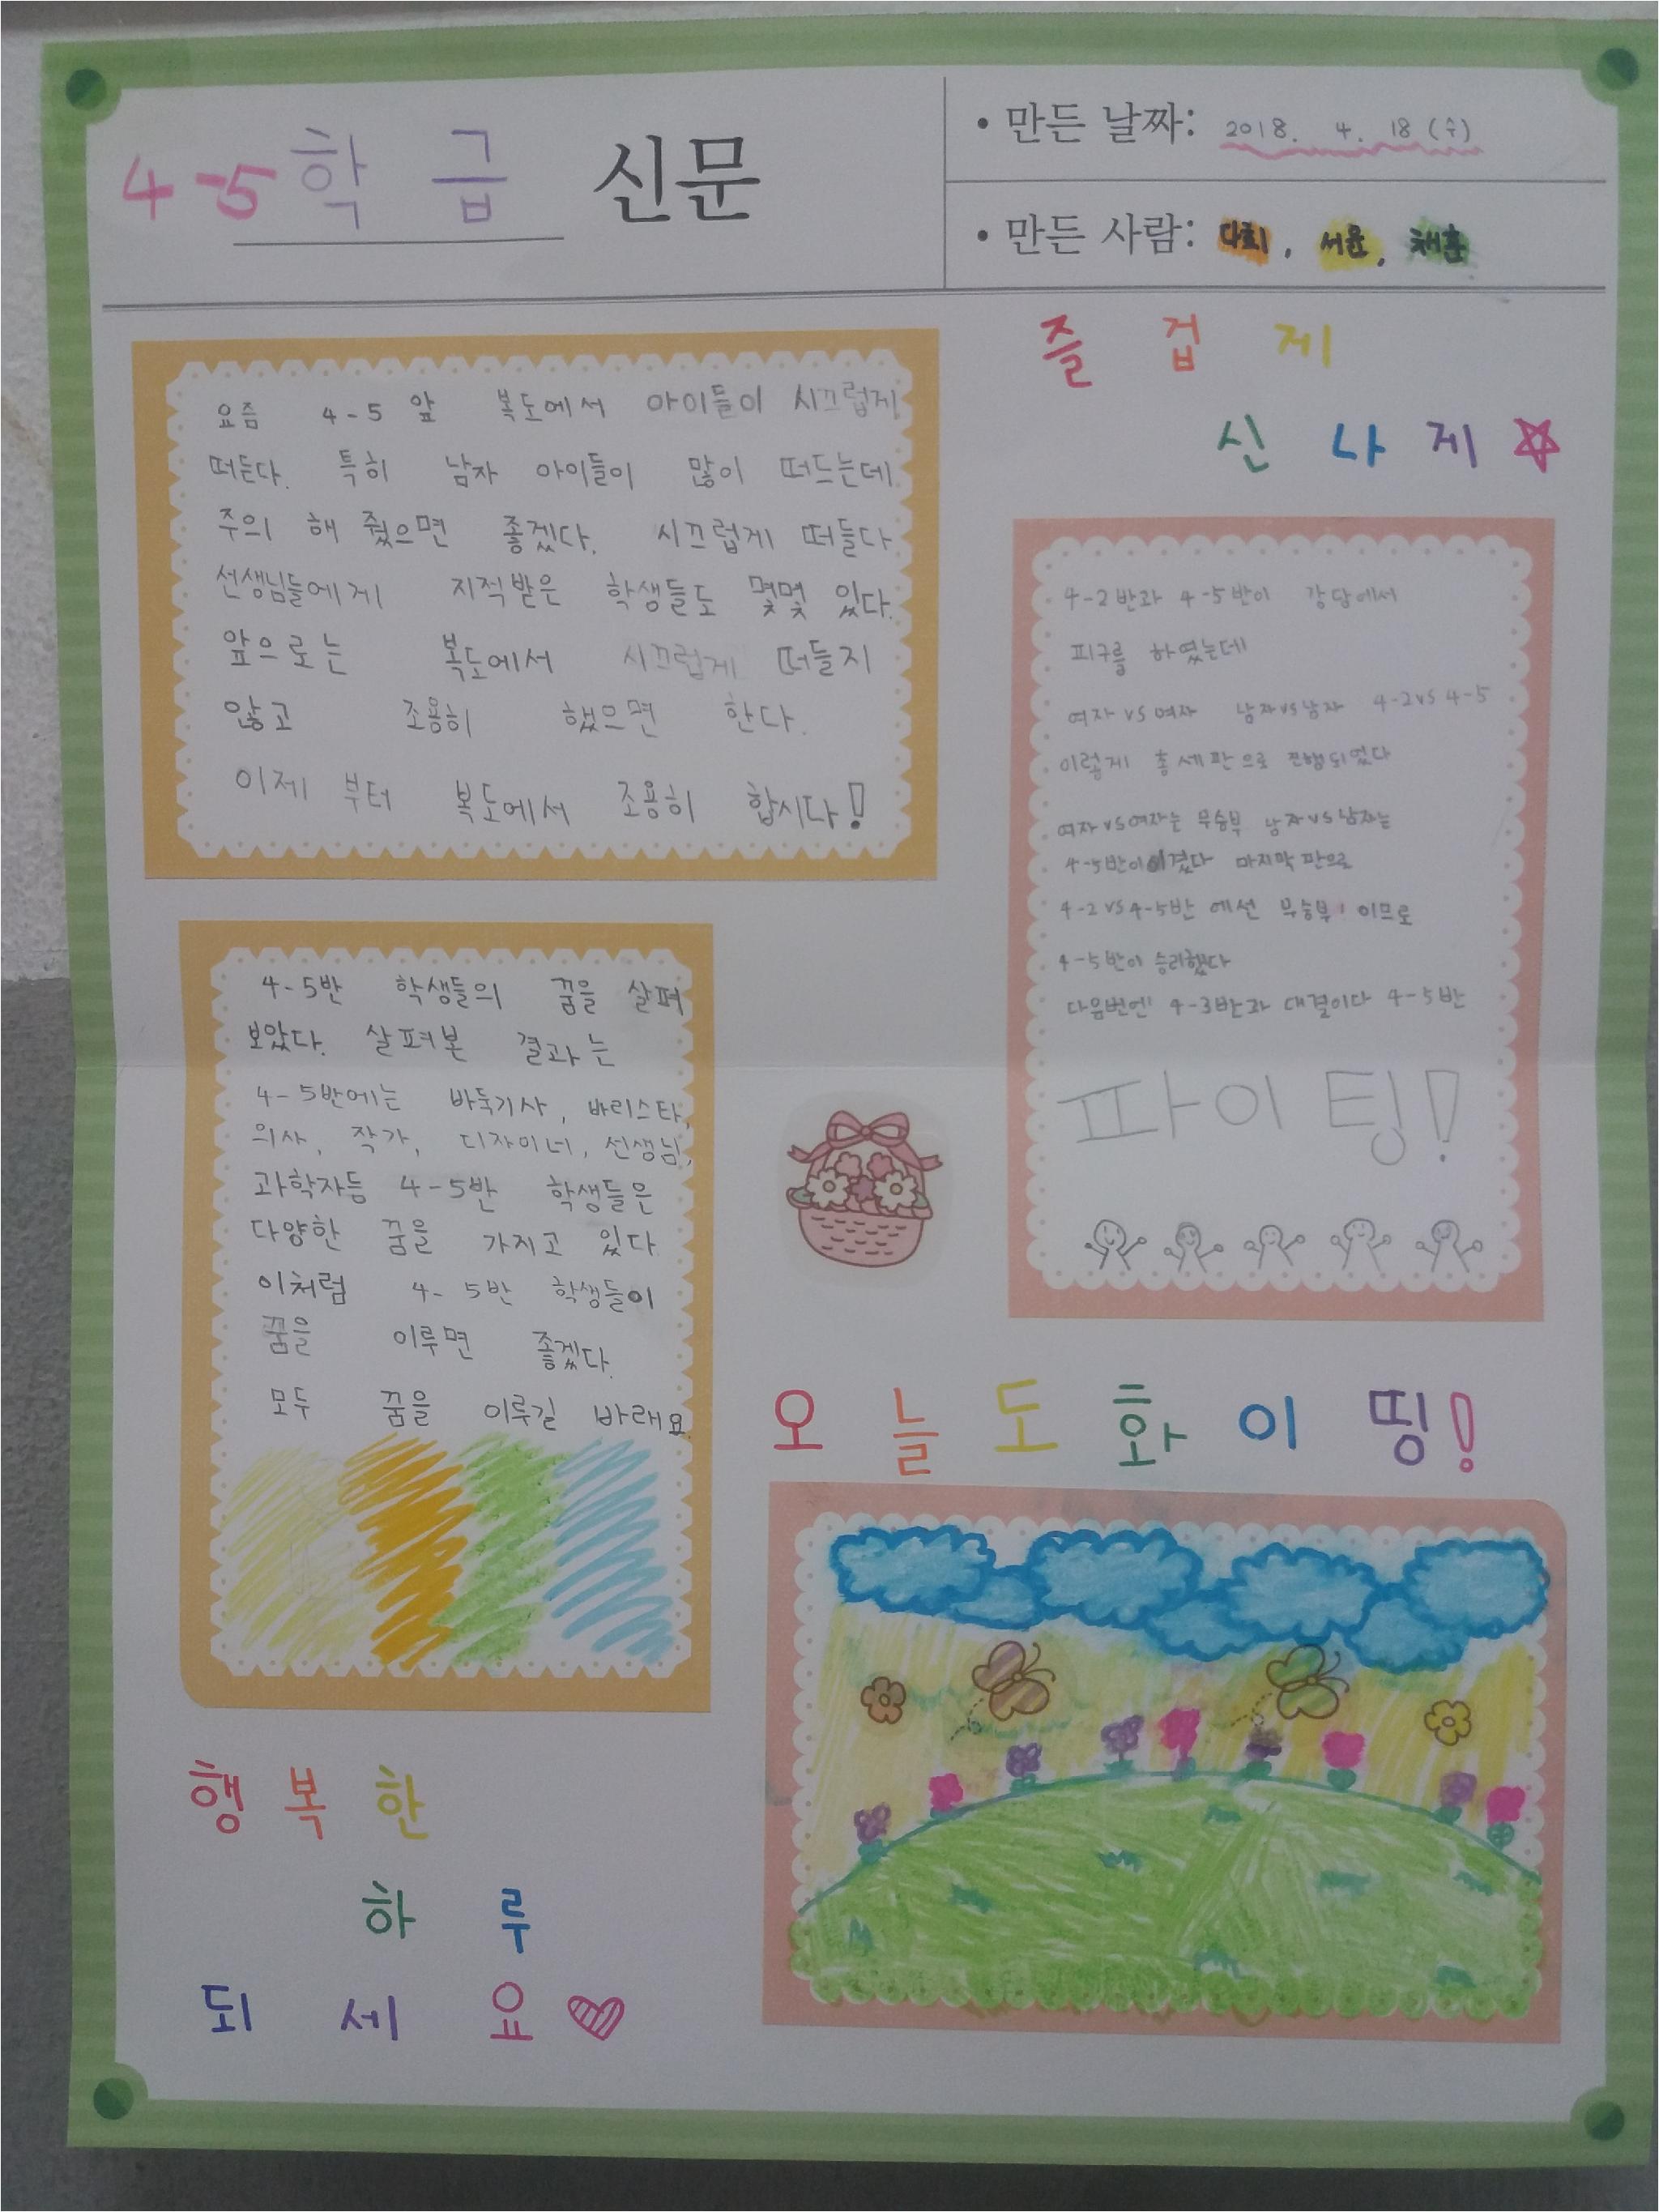 4-5 학급 신문
• 만든 날짜: 2018. 4. 18 (수)
• 만든 사람: 다희, 서윤, 채훈
즐겁게
신나게
요즘 4-5 앞 복도에서 아이들이 시끄럽게
떠든다. 특히 남자 아이들이 많이 떠드는데
주의 해 줬으면 좋겠다. 시끄럽게 떠들다
선생님들에게 지적받은 학생들도 몇몇 있다.
앞으로는 복도에서 시끄럽게 떠들지
않고 조용히 했으면 한다.
이제 부터 복도에서 조용히 합시다!
4-2반과 4-5반이 강담에서
피구를 하였는데
여자 vs 여자 남자 vs 남자 4-2 vs 4-5
이렇게 총 세 판으로 진행되었다
여자 vs 여자는 무승부 남자 vs 남자는
4-5반이 이겼다 마지막 판으로
4-2 vs 4-5반 에선 무승부! 이므로
4-5반이 승리했다
다음번엔 4-3반과 대결이다 4-5반
파이팅!
4-5반 학생들의 꿈을 살펴
보았다. 살펴본 결과는
4-5반에는 바둑기사, 바리스타,
의사, 작가, 디자이너, 선생님,
과학자등 4-5반 학생들은
다양한 꿈을 가지고 있다
이처럼 4-5반 학생들이
꿈을 이루면 좋겠다.
모두 꿈을 이루길 바래요
오늘도 화이띵!
행복한
하루
되세요